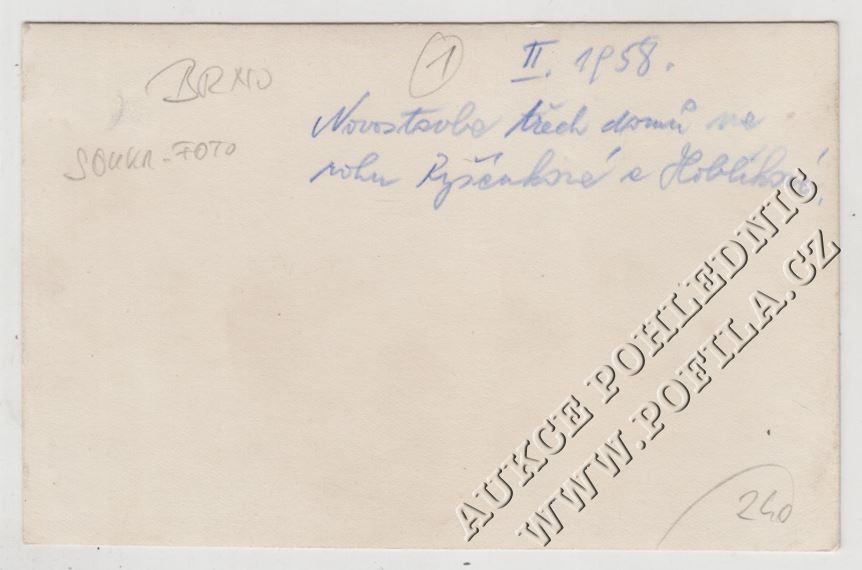 BRNO
① II. 1958.
Novostavba třech domů na
rohu Ryšánkové a Hoblíkové.
SOUKR.-FOTO
AUKCE POHLEDNIC
WWW.POFILA.CZ
240